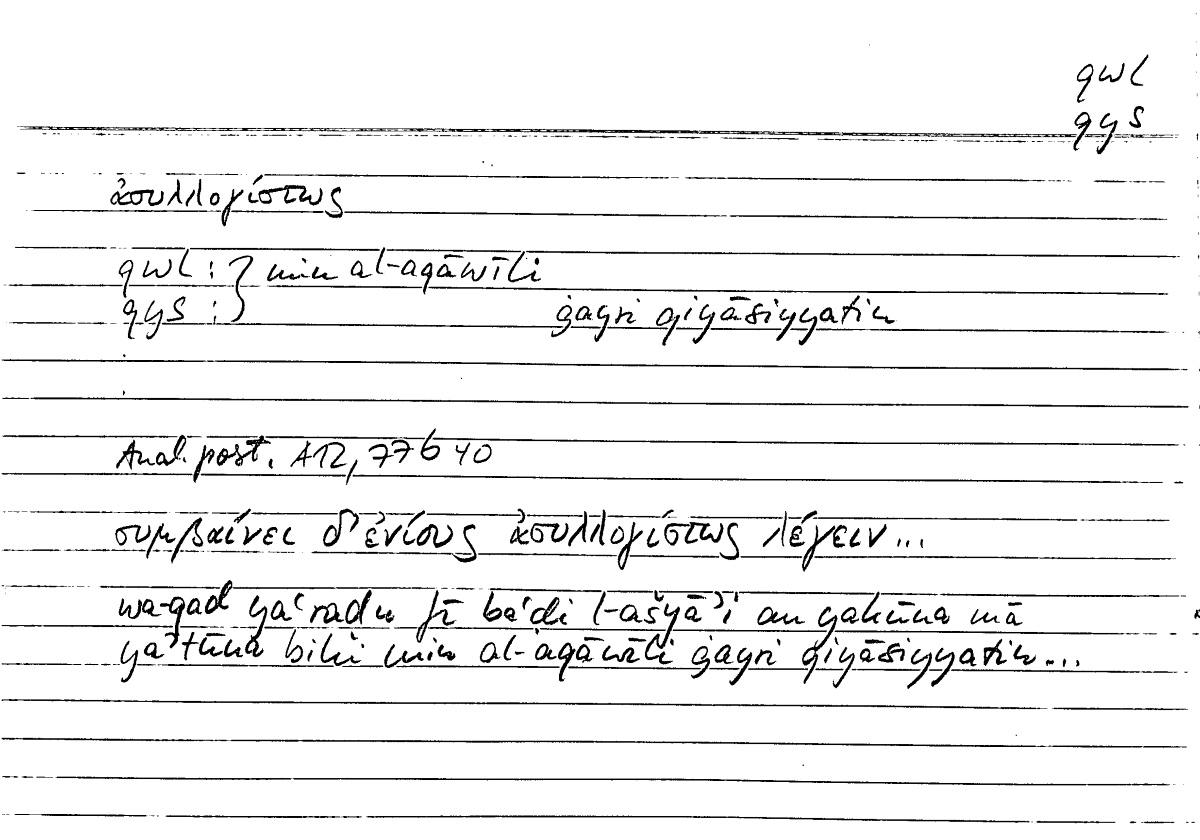 qwl
qys
ἀσυλλογίστως
qwl : } min al-aqāwīli
qys : } ġayri qiyāsiyyatin
Anal. post. A12, 77b40
συμβαίνει δ' ἐνίους ἀσυλλογίστως λέγειν...
wa-qad yaʿraḍu fī baʿḍi l-ašyāʾi an yakūna mā
yaʾtūna bihī min al-aqāwīli ġayri qiyāsiyyatin...